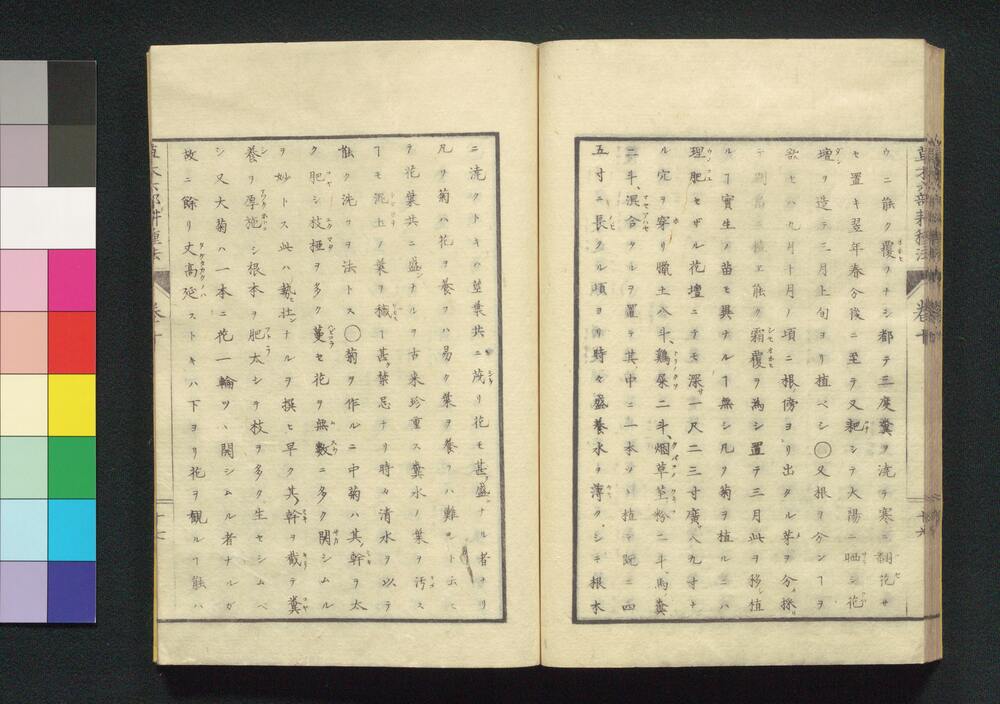 草木六部耕種法 巻十
ウニ能ク覆ヲナシ都テ三度糞ヲ澆テ寒ニ翻花サ
セ置キ翌年春分後ニ至テ又耙シテ大陽ニ晒シ花
壇ヲ造テ三月上旬ヨリ植ベシ〇又根ヲ分ンヿヲ
欲セハ九月十月ノ頃ニ根傍ヨリ出タル芽ヲ分採
テ別畠ニ植エ能ク霜覆ヲ為シ置テ三月此ヲ移植
ルヿ實生ノ苗ト異ナルヿ無シ凡ソ菊ヲ植ルニハ
理肥セザル花壇ニテモ深サ一尺二三寸廣サ八九寸ナ
ル穴ヲ穿リ臘土八斗、鷄屎二斗、烟草莖粉二斗、馬糞
二斗、溷合タルヲ置テ其中ニ一本ツヽ植テ既ニ四
五寸ニ長タル頃ヨリ時々盛養水ヲ薄クシテ根本
ニ澆クトキハ莖葉共ニ茂リ花モ甚盛ナル者ナリ
凡ソ菊ハ花ヲ養フハ易ク葉ヲ養フハ難シト云ヒ
テ花葉共ニ盛ナルヲ古来珍重ス糞水ノ葉ヲ汚ス
ヿモ泥土ノ葉ヲ穢ヿ甚禁忌ナリ時々清水ヲ以テ
能ク洗フヲ法トス〇菊ヲ作ルニ中菊ハ其幹ヲ太
ク肥シ枝椏ヲ多ク蔓セ花ヲ無數ニ多ク開シムル
ヲ妙トス此ハ勢壮ナルヲ撰ヒ早ク其幹ヲ截テ糞
養ヲ厚施シ根本ヲ肥太シテ枝ヲ多ク生セシムベ
シ又大菊ハ一本ニ花一輪ツヽ開シムル者ナルガ
故ニ餘リ丈高延ストキハ下ヨリ花ヲ観ルヿ能ハ